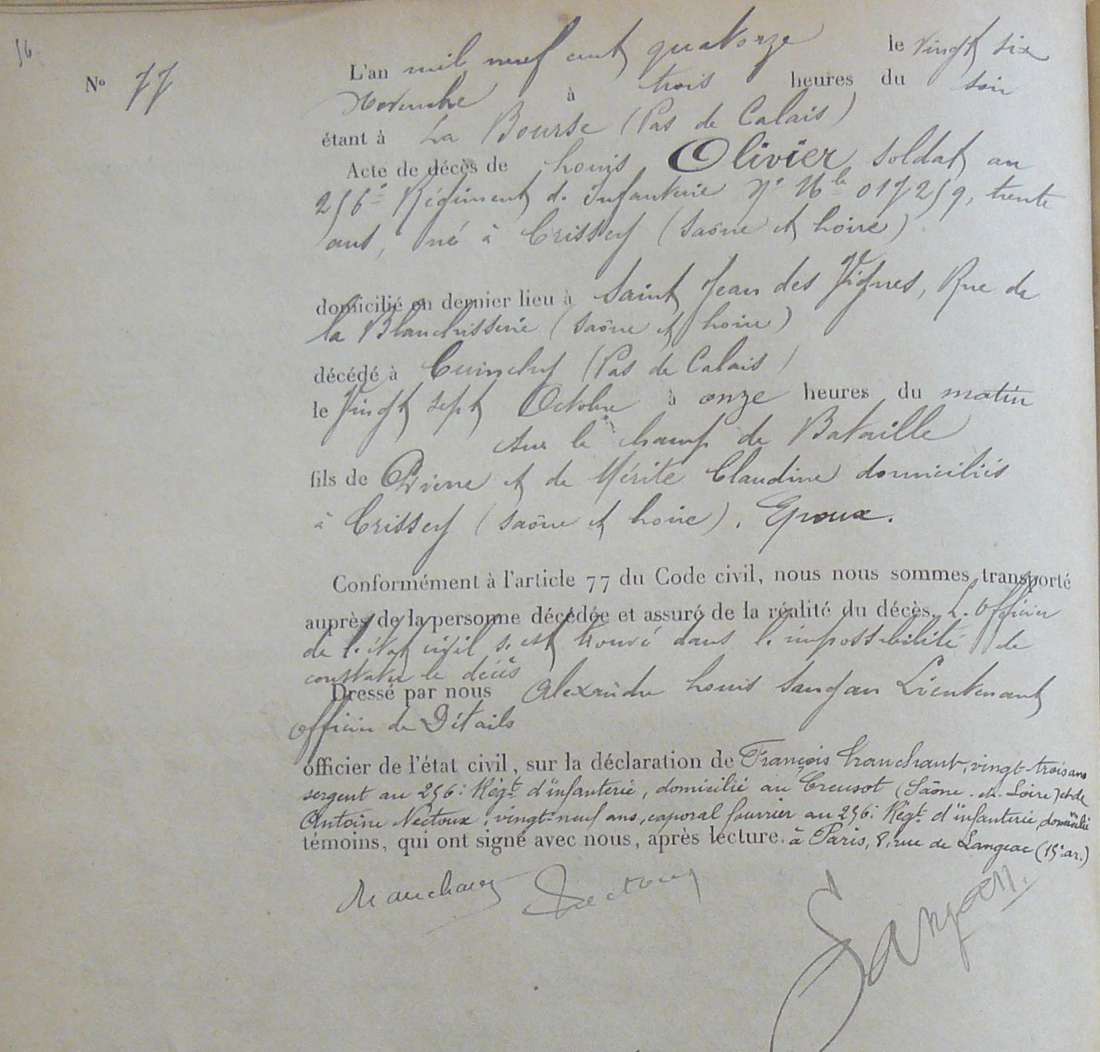 56
N° 77
L'an mil neuf cent quatorze le vingt six
Novembre à trois heures du soir
étant à La Bourse (Pas de Calais)
Acte de décès de Louis Olivier soldat au
256e Régiment d'Infanterie N° Mle 017259, trente
ans, né à Crissey (Saône et Loire)
domicilié en dernier lieu à Saint Jean des Vignes, Rue de
la Blanchisserie (Saône et Loire)
décédé à Cuinchy (Pas de Calais)
le Vingt sept Octobre à onze heures du matin
sur le champ de Bataille
fils de Pierre et de Mérite Claudine domiciliés
à Crissey (Saône et Loire). Epoux.
Conformément à l'article 77 du Code civil, nous nous sommes transporté
auprès de la personne décédée et assuré de la réalité du décès. L'officier
de l'état civil s'est trouvé dans l'impossibilité de
constater le décès
Dressé par nous Alexandre Louis Sangan Lieutenant
officier de Détails
officier de l'état civil, sur la déclaration de François Manchant, vingt-trois ans
sergent au 256e Régt d'infanterie, domicilié au Creusot (Saône-et-Loire) et de
Antoine Nectoux, vingt-neuf ans, caporal fourrier au 256e Régt d'infanterie domicilié
témoins, qui ont signé avec nous, après lecture. à Paris, 8, rue de Langeac (15e ar.)
Nectoux
Sangan